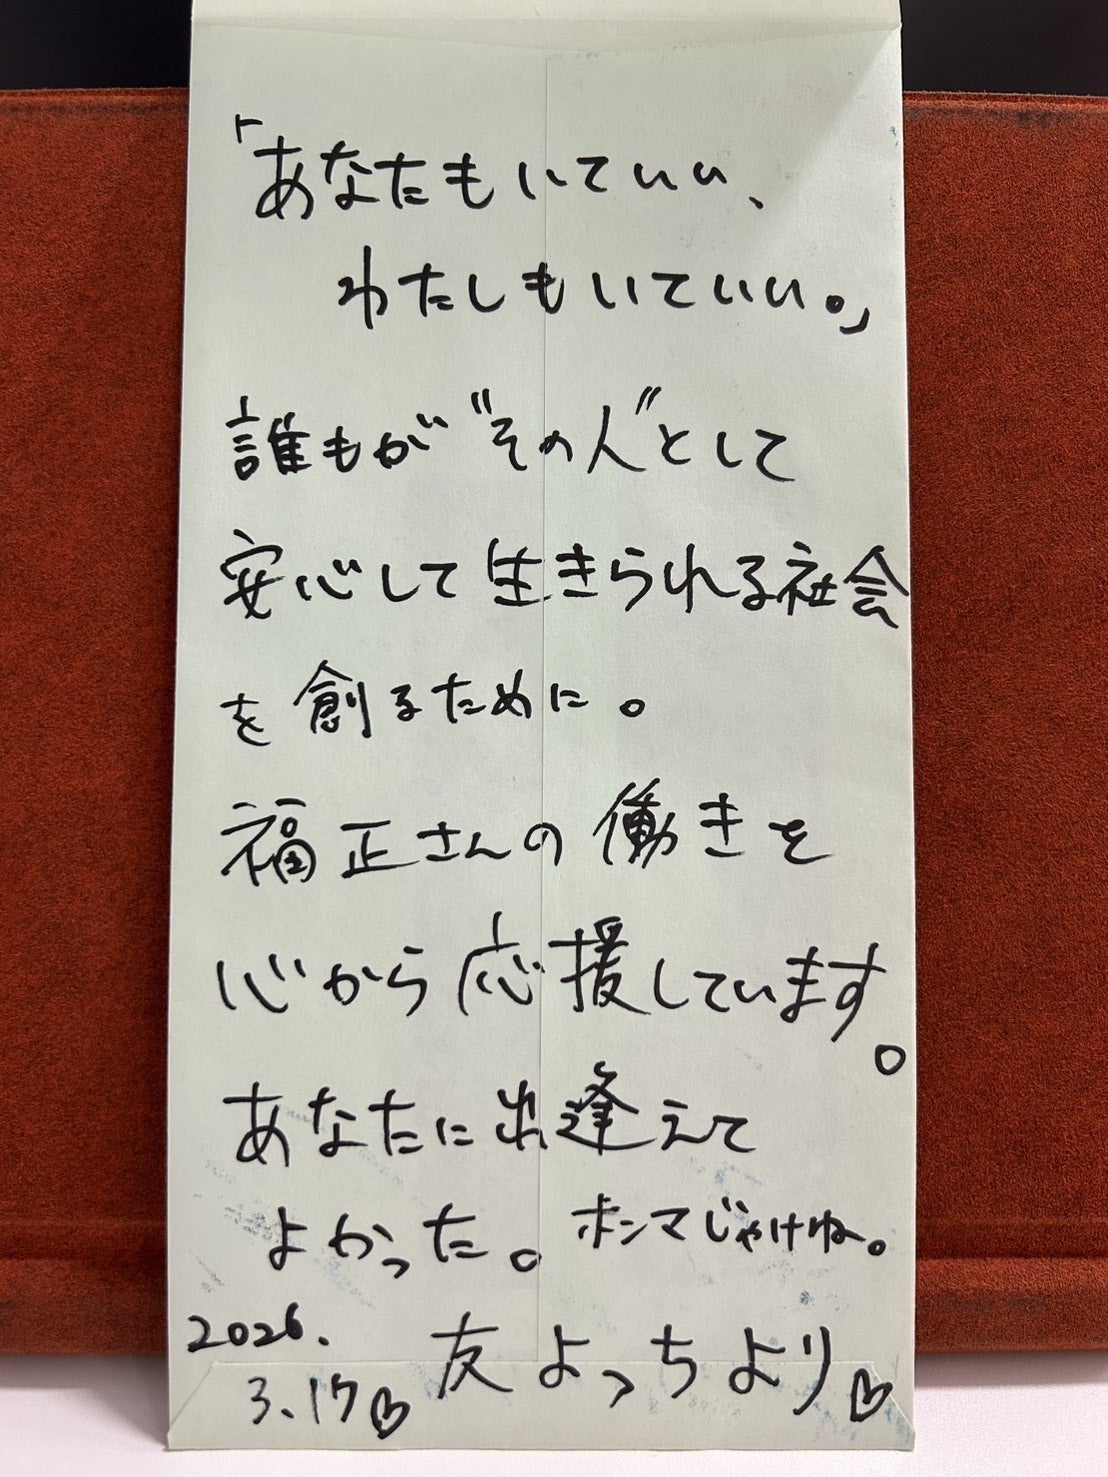 「あなたもいていい、
わたしもいていい。」
誰もが〝その人〟として
安心して生きられる社会
を創るために。
福正さんの働きを
心から応援しています。
あなたに出逢えて
よかった。ホンマじゃけね。
2026.
3.17♡
友よっちより♡